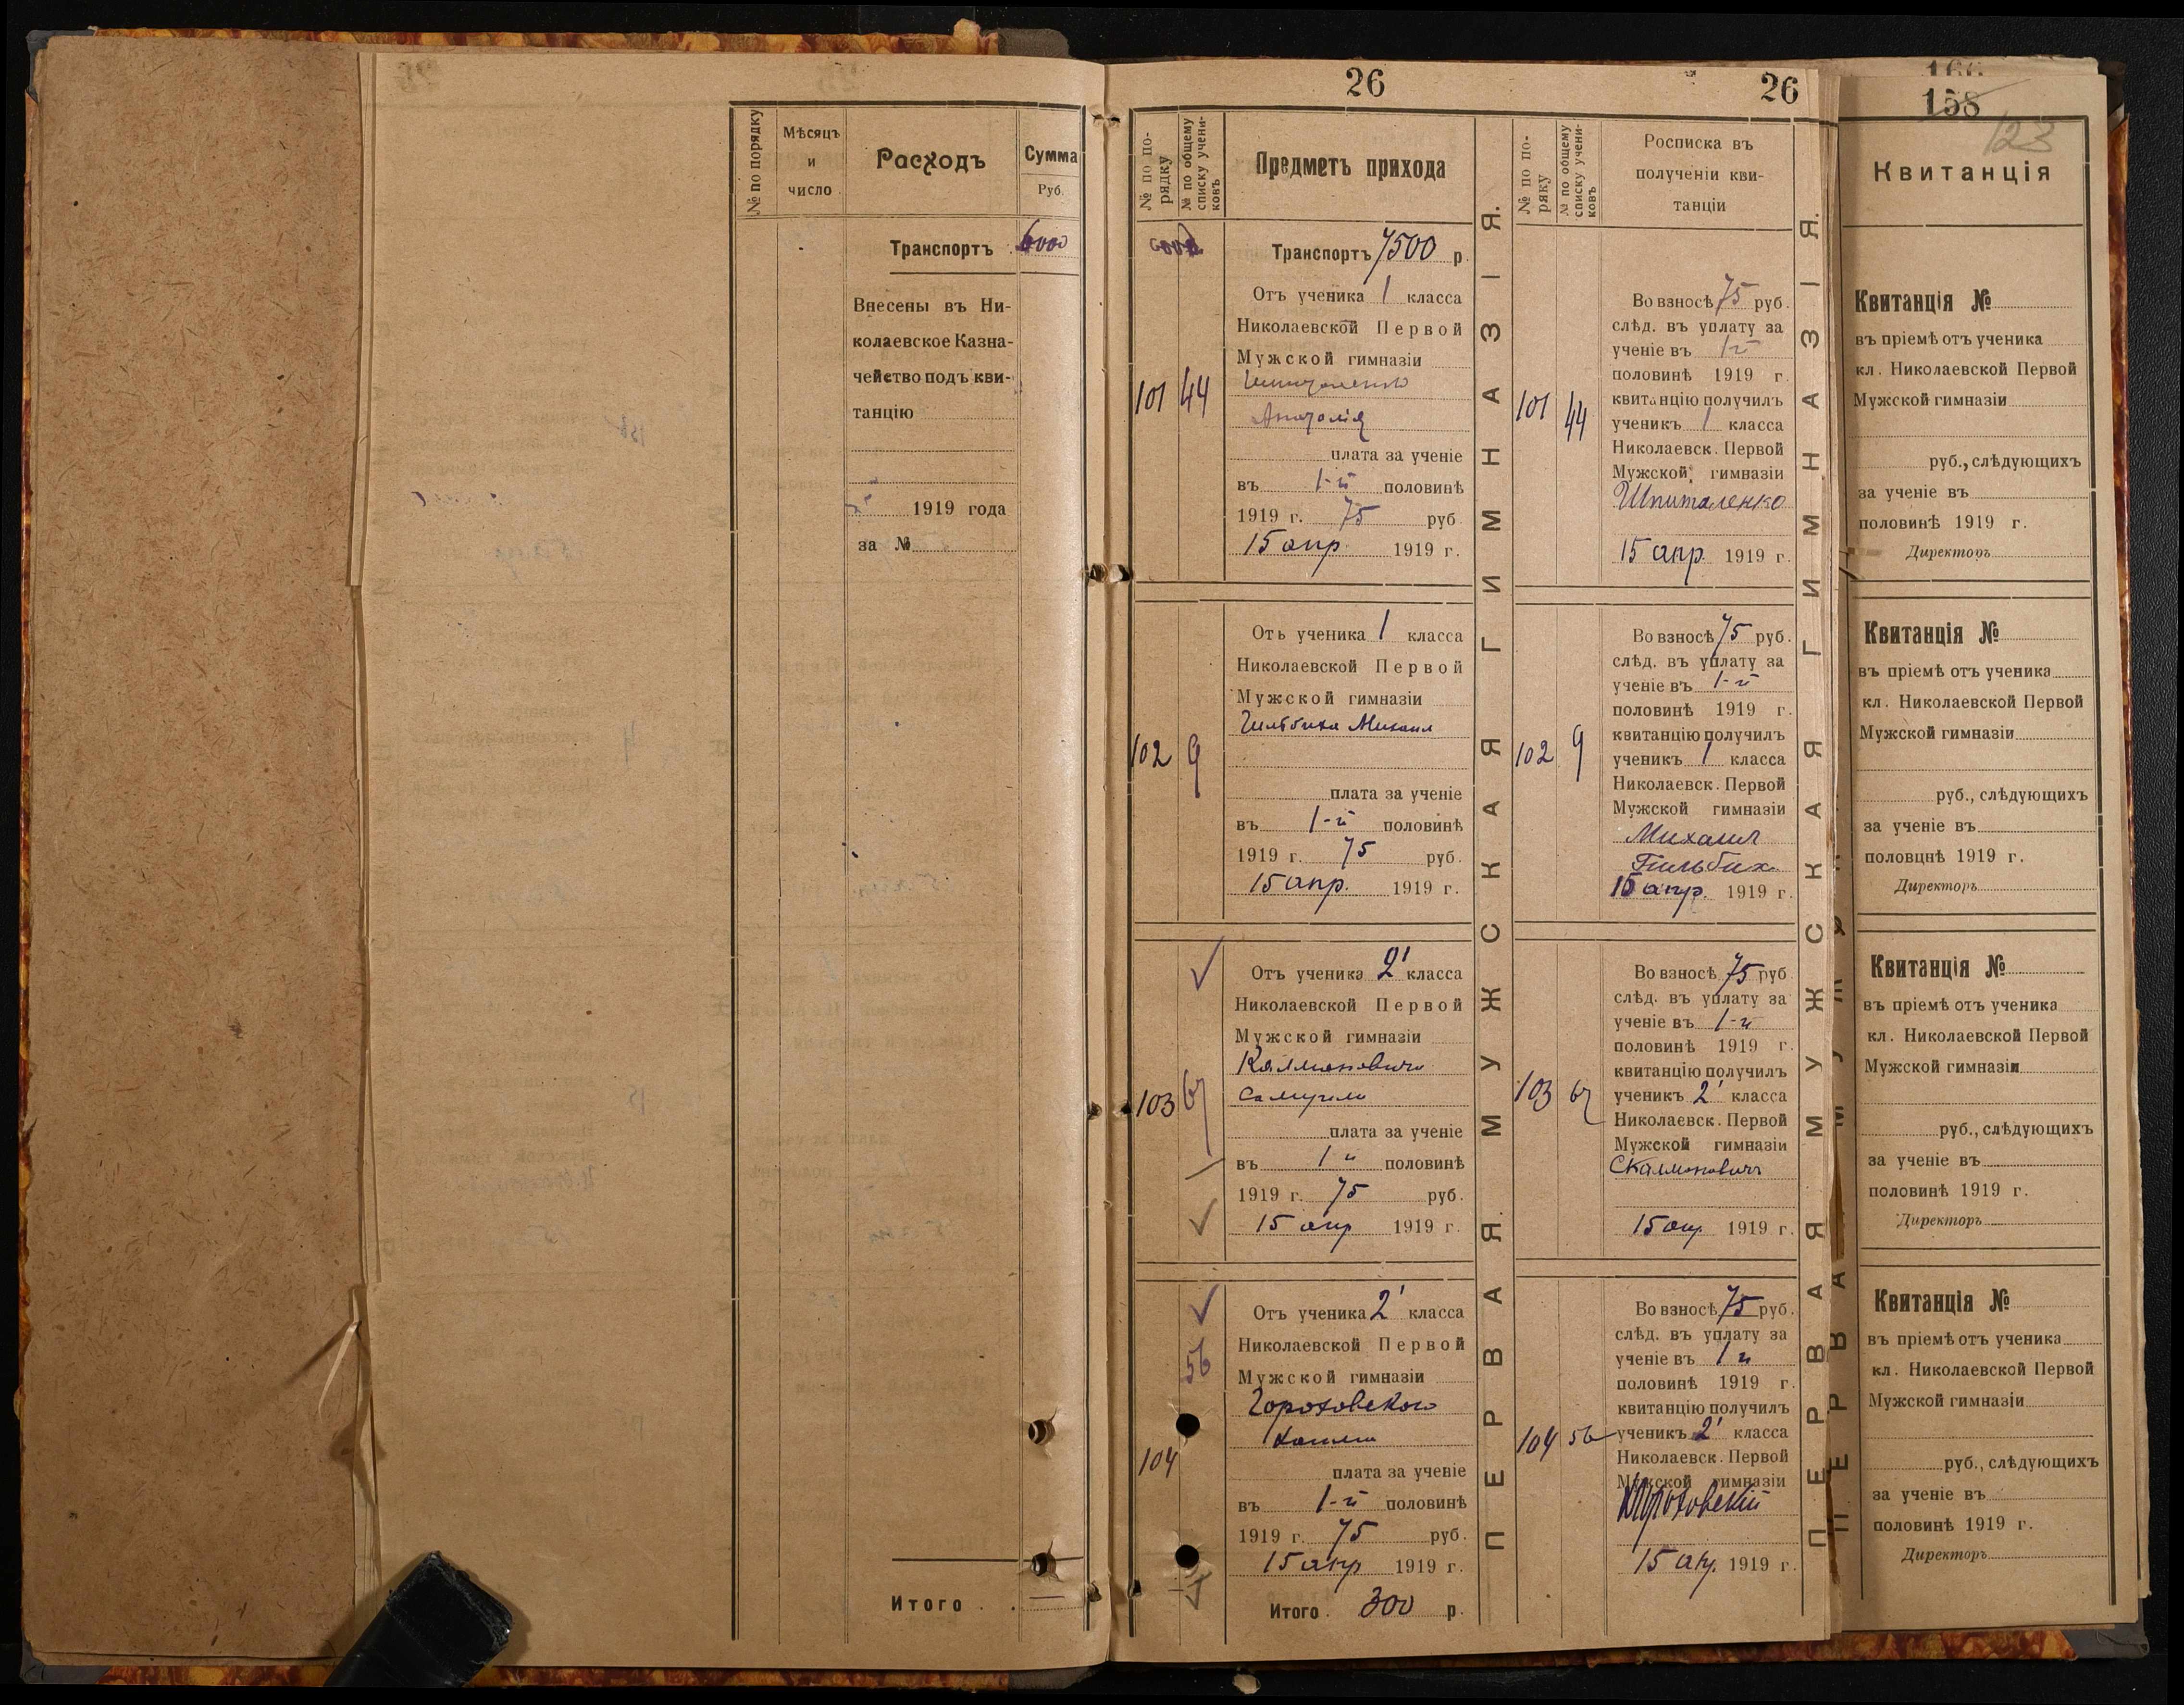 № по порядку
Мѣсяцъ
и
число
Расходъ
Сумма
Руб.
Транспортъ 6000
Внесены въ Ни-
колаевское Казна-
чейство подъ кви-
танцію
1919 года
за №
Итого . .
26
№ по по-
рядку
№ по общему
списку учени-
ковъ
Предметъ прихода
Транспортъ 7500 р.
101
44
Отъ ученика 1 класса
Николаевской Первой
Мужской гимназіи
Анатолія
плата за ученіе
въ 1-й половинѣ
1919 г. 75 руб
15 апр. 1919 г.
102
9
Отъ ученика 1 класса
Николаевской Первой
Мужской гимназіи
Гильбиха Михаил
плата за ученіе
въ 1-й половинѣ
1919 г. 75 руб.
15 апр. 1919 г.
103
67
Отъ ученика 2' класса
Николаевской Первой
Мужской гимназіи
Калмановича
Самуила
плата за ученіе
въ 1й половинѣ
1919 г. 75 руб.
15 апр 1919 г.
104
56
Отъ ученика 2' класса
Николаевской Первой
Мужской гимназіи
Гороховского
плата за ученіе
въ 1-й половинѣ
1919 г. 75 руб.
15 апр 1919 г.
Итого . 300 р.
ПЕРВАЯ МУЖСКАЯ ГИМНАЗІЯ.
26
№ по по-
ряку
№ по общему
списку учени-
ковъ
Росписка въ
полученіи кви-
танціи
101
44
Во взносѣ 75 руб.
слѣд. въ уплату за
ученіе въ 1й
половинѣ 1919 г.
квитанцію получилъ
ученикъ 1 класса
Николаевск. Первой
Мужской гимназіи
Шпиталенко
15 апр. 1919 г.
102
9
Во взносѣ 75 руб.
слѣд. въ уплату за
ученіе въ 1-й
половинѣ 1919 г.
квитанцію получилъ
ученикъ 1 класса
Николаевск. Первой
Мужской гимназіи
Михаил
Гильбих
15 апр. 1919 г.
103
67
Во взносѣ 75 руб.
слѣд. въ уплату за
ученіе въ 1-й
половинѣ 1919 г.
квитанцію получилъ
ученикъ 2' класса
Николаевск. Первой
Мужской гимназіи
СКалмановичъ
15 апр. 1919 г.
104
56
Во взносѣ 75 руб.
слѣд. въ уплату за
ученіе въ 1й
половинѣ 1919 г.
квитанцію получилъ
ученикъ 2' класса
Николаевск. Первой
Мужской гимназіи
15 апр. 1919 г.
ПЕРВАЯ МУЖСКАЯ ГИМНАЗІЯ.
158
123
Квитанція
Квитанція №
въ пріемѣ отъ ученика
кл. Николаевской Первой
Мужской гимназіи
руб., слѣдующихъ
за ученіе въ
половинѣ 1919 г.
Директоръ
Квитанція №
въ пріемѣ отъ ученика
кл. Николаевской Первой
Мужской гимназіи
руб., слѣдующихъ
за ученіе въ
половцнѣ 1919 г.
Директоръ
Квитанція №
въ пріемѣ отъ ученика
кл. Николаевской Первой
Мужской гимназіи
руб., слѣдующихъ
за ученіе въ
половинѣ 1919 г.
Директоръ
Квитанція №
въ пріемѣ отъ ученика
кл. Николаевской Первой
Мужской гимназіи
руб., слѣдующихъ
за ученіе въ
половинѣ 1919 г.
Директоръ